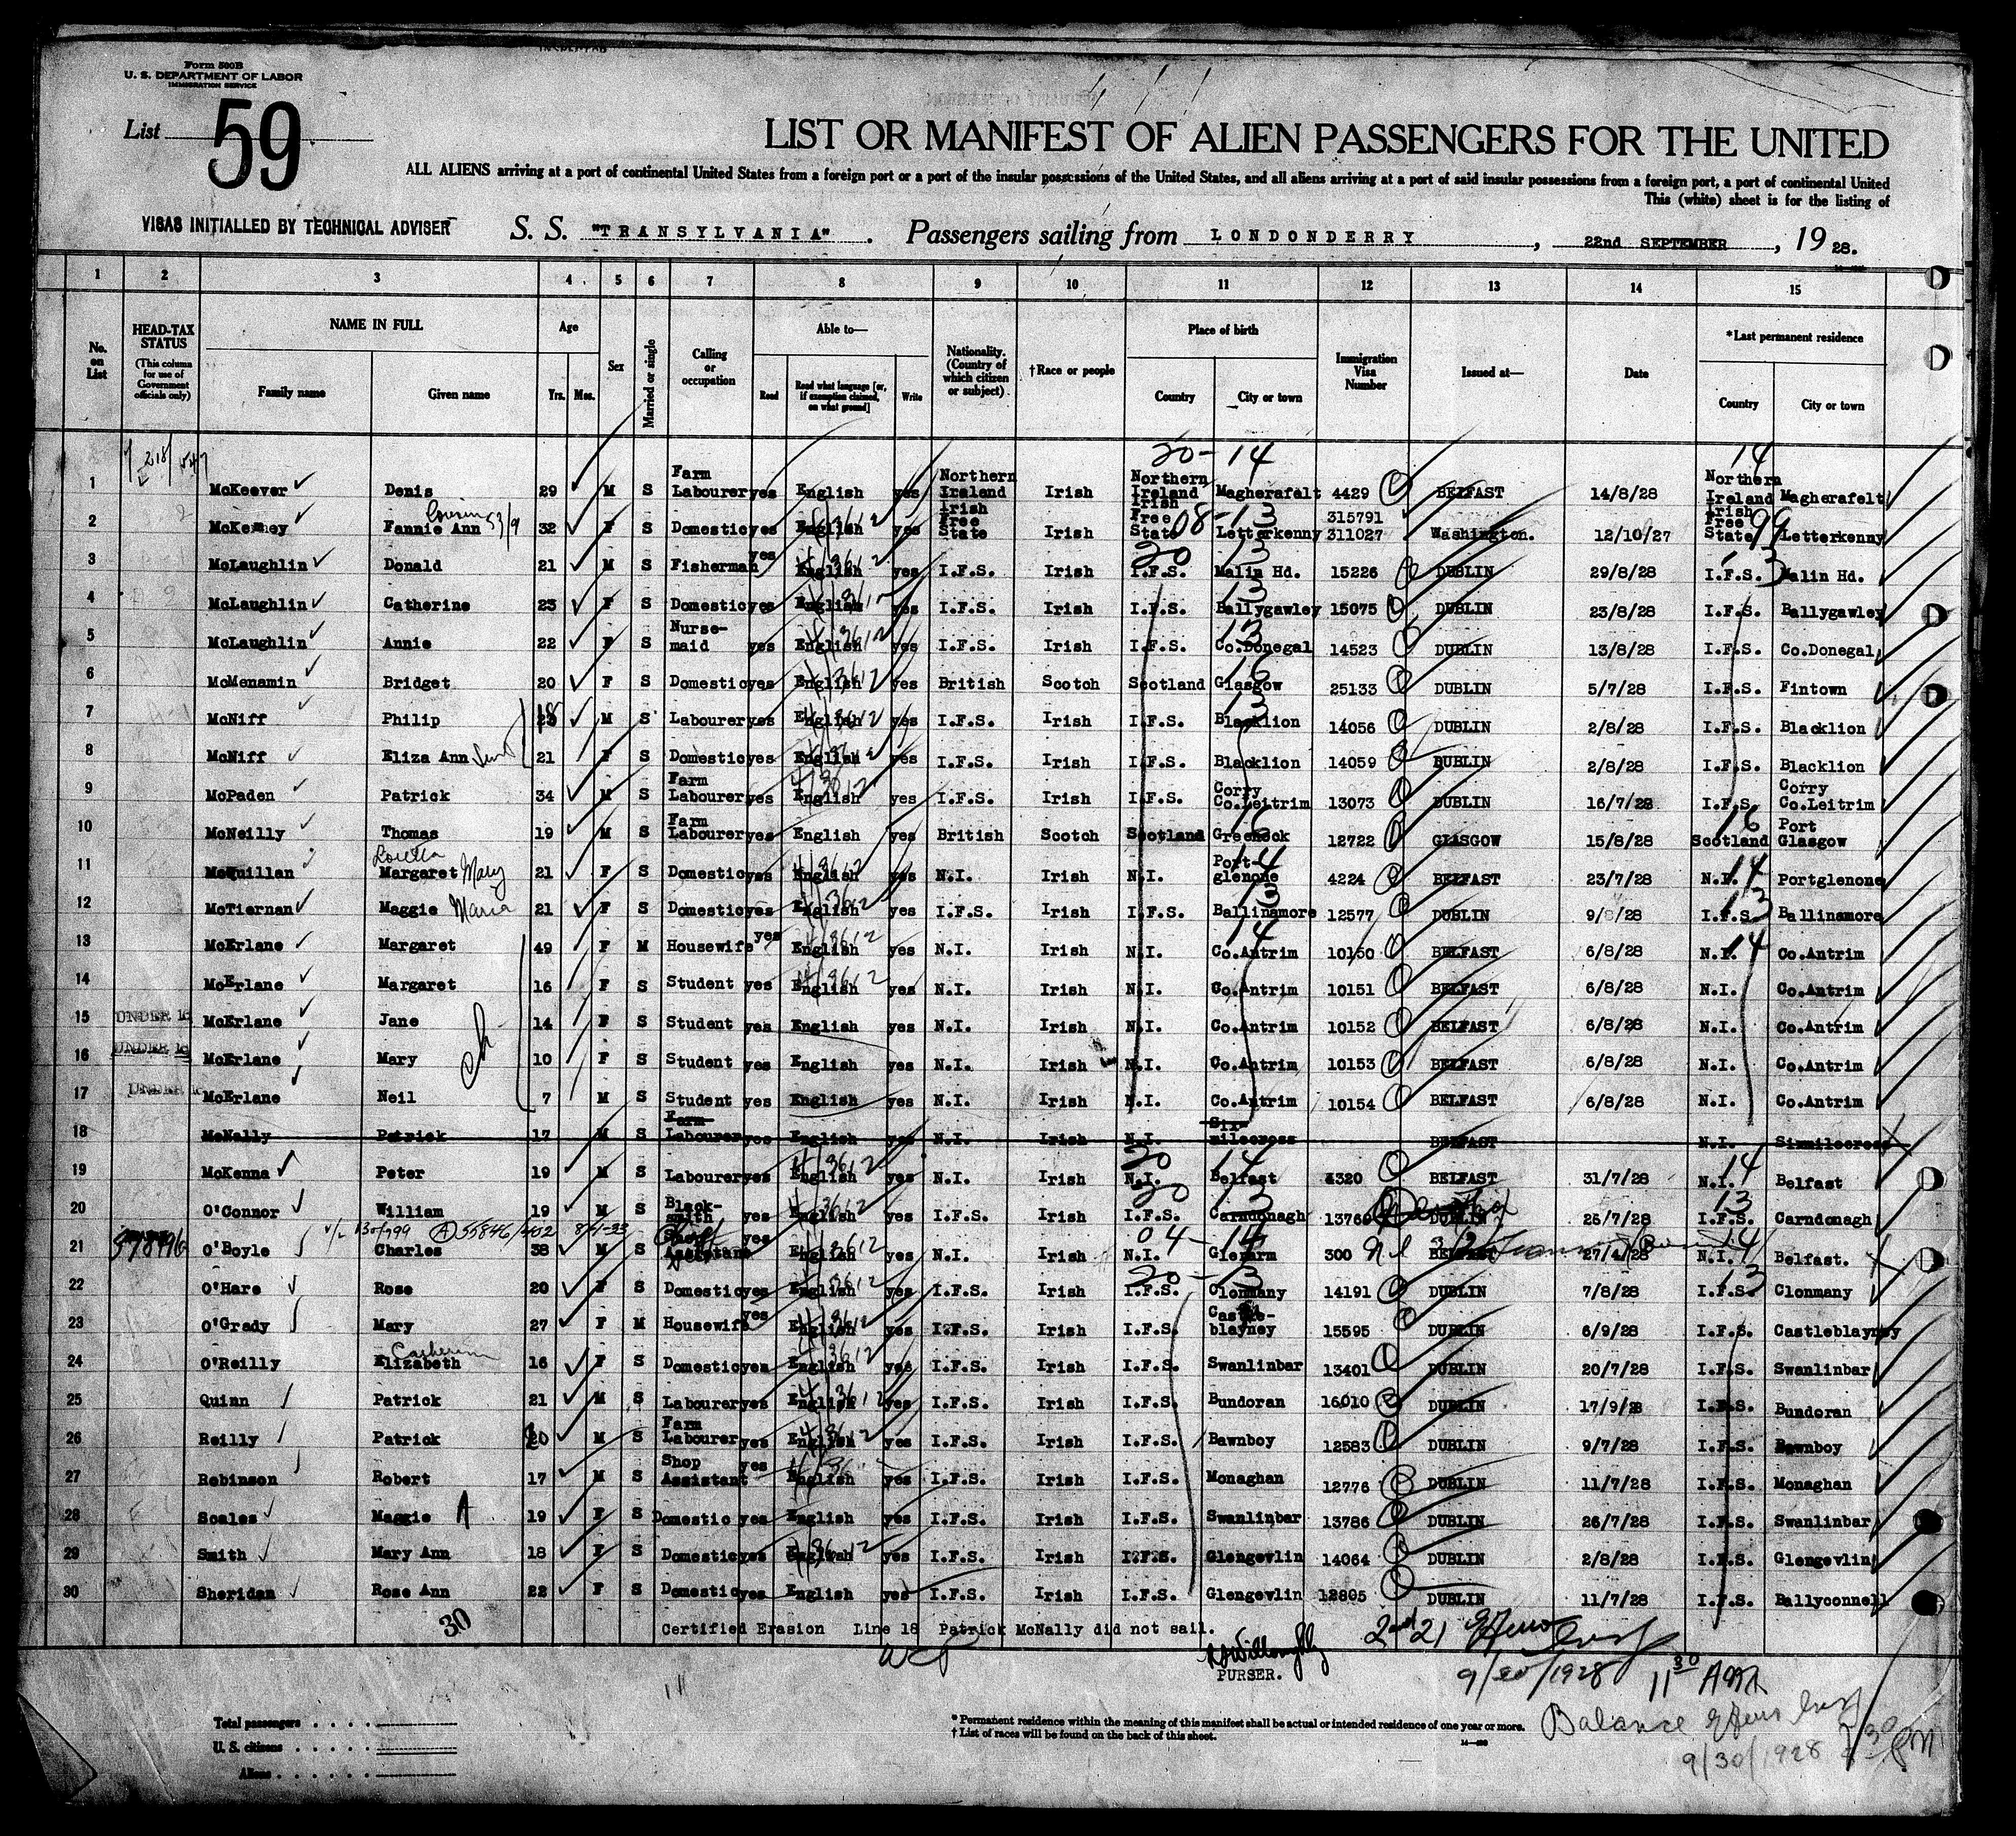 Form 500B
U. S. DEPARTMENT OF LABOR
IMMIGRATION SERVICE
List 59
LIST OR MANIFEST OF ALIEN PASSENGERS FOR THE UNITED
ALL ALIENS arriving at a port of continental United States from a foreign port or a port of the insular possessions of the United States, and all aliens arriving at a port of said insular possessions from a foreign port, a port of continental United
This (white) sheet is for the listing of
VISAS INITIALLED BY TECHNICAL ADVISER
S. S. "TRANSYLVANIA". Passengers sailing from LONDONDERRY, 22nd SEPTEMBER, 19 28.
1 2 3 4 5 6 7 8 9 10 11 12 13 14 15
No. on List
HEAD-TAX STATUS (This column for use of Government officials only)
NAME IN FULL Family name Given name
Age Yrs. Mos.
Sex
Married or single
Calling or occupation
Able to— Read Read what language [or, if exemption claimed, on what ground] Write
Nationality. (Country of which citizen or subject)
†Race or people
Place of birth Country City or town
Immigration Visa Number
Issued at—
Date
*Last permanent residence Country City or town
20-14 14
1 McKeever Denis 29 M S Farm Labourer yes English yes Northern Ireland Irish Northern Ireland Magherafelt 4429 BELFAST 14/8/28 Northern Ireland Magherafelt
2 McKenney Fannie Ann 32 F S Domestic yes English yes Irish Free State Irish Irish Free State Letterkenny 315791 311027 Washington. 12/10/27 Irish Free State Letterkenny
3 McLaughlin Donald 21 M S Fisherman yes English yes I.F.S. Irish I.F.S. Malin Hd. 15226 DUBLIN 29/8/28 I.F.S. Malin Hd.
4 McLaughlin Catherine 23 F S Domestic yes English yes I.F.S. Irish I.F.S. Ballygawley 15075 DUBLIN 23/8/28 I.F.S. Ballygawley
5 McLaughlin Annie 22 F S Nurse-maid yes English yes I.F.S. Irish I.F.S. Co.Donegal 14523 DUBLIN 13/8/28 I.F.S. Co.Donegal
6 McMenamin Bridget 20 F S Domestic yes English yes British Scotch Scotland Glasgow 25133 DUBLIN 5/7/28 I.F.S. Fintown
7 McNiff Philip M S Labourer yes English yes I.F.S. Irish I.F.S. Blacklion 14056 DUBLIN 2/8/28 I.F.S. Blacklion
8 McNiff Eliza Ann 21 F S Domestic yes English yes I.F.S. Irish I.F.S. Blacklion 14059 DUBLIN 2/8/28 I.F.S. Blacklion
9 McPaden Patrick 34 M S Farm Labourer yes English yes I.F.S. Irish I.F.S. Corry Co.Leitrim 13073 DUBLIN 16/7/28 I.F.S. Corry Co.Leitrim
10 McNeilly Thomas 19 M S Farm Labourer yes English yes British Scotch Scotland Greenock 12722 GLASGOW 15/8/28 Scotland Port Glasgow
11 McQuillan Loretta Margaret Mary 21 F S Domestic yes English yes N.I. Irish N.I. Port-glenone 4224 BELFAST 23/7/28 N.I. Portglenone
12 McTiernan Maggie Maria 21 F S Domestic yes English yes I.F.S. Irish I.F.S. Ballinamore 12577 DUBLIN 9/8/28 I.F.S. Ballinamore
13 McErlane Margaret 49 F M Housewife yes English yes N.I. Irish N.I. Co.Antrim 10150 BELFAST 6/8/28 N.I. Co.Antrim
14 McErlane Margaret 16 F S Student yes English yes N.I. Irish N.I. Co.Antrim 10151 BELFAST 6/8/28 N.I. Co.Antrim
15 UNDER 16 McErlane Jane 14 F S Student yes English yes N.I. Irish N.I. Co.Antrim 10152 BELFAST 6/8/28 N.I. Co.Antrim
16 UNDER 16 McErlane Mary 10 F S Student yes English yes N.I. Irish N.I. Co.Antrim 10153 BELFAST 6/8/28 N.I. Co.Antrim
17 UNDER 16 McErlane Neil 7 M S Student yes English yes N.I. Irish N.I. Co.Antrim 10154 BELFAST 6/8/28 N.I. Co.Antrim
18 McNally Patrick 17 M S Farm Labourer yes English yes N.I. Irish N.I. Six-milecross BELFAST N.I. Sixmilecross
19 McKenna Peter 19 M S Labourer yes English yes N.I. Irish N.I. Belfast 4320 BELFAST 31/7/28 N.I. Belfast
20 O'Connor William 19 M S Black-smith yes English yes I.F.S. Irish I.F.S. Carndonagh 13769 DUBLIN 26/7/28 I.F.S. Carndonagh
21 O'Boyle Charles 38 M S Shop Assistant yes English yes N.I. Irish N.I. Glenarm 300 BELFAST 27/4/28 N.I. Belfast.
22 O'Hare Rose 20 F S Domestic yes English yes I.F.S. Irish I.F.S. Clonmany 14191 DUBLIN 7/8/28 I.F.S. Clonmany
23 O'Grady Mary 27 F M Housewife yes English yes I.F.S. Irish I.F.S. Castle-blayney 15595 DUBLIN 6/9/28 I.F.S. Castleblayney
24 O'Reilly Elizabeth Catherine 16 F S Domestic yes English yes I.F.S. Irish I.F.S. Swanlinbar 13401 DUBLIN 20/7/28 I.F.S. Swanlinbar
25 Quinn Patrick 21 M S Labourer yes English yes I.F.S. Irish I.F.S. Bundoran 16010 DUBLIN 17/9/28 I.F.S. Bundoran
26 Reilly Patrick 20 M S Farm Labourer yes English yes I.F.S. Irish I.F.S. Bawnboy 12583 DUBLIN 9/7/28 I.F.S. Bawnboy
27 Robinson Robert 17 M S Shop Assistant yes English yes I.F.S. Irish I.F.S. Monaghan 12776 DUBLIN 11/7/28 I.F.S. Monaghan
28 Scales Maggie A 19 F S Domestic yes English yes I.F.S. Irish I.F.S. Swanlinbar 13786 DUBLIN 26/7/28 I.F.S. Swanlinbar
29 Smith Mary Ann 18 F S Domestic yes English yes I.F.S. Irish I.F.S. Glengevlin 14064 DUBLIN 2/8/28 I.F.S. Glengevlin
30 Sheridan Rose Ann 22 F S Domestic yes English yes I.F.S. Irish I.F.S. Glengevlin 12805 DUBLIN 11/7/28 I.F.S. Ballyconnell
30
Certified Erasion Line 18 Patrick McNally did not sail.
PURSER.
9/30/1928 11 30 AM
Balance
9/30/1928
Total passengers
U. S. citizens
Aliens
* Permanent residence within the meaning of this manifest shall be actual or intended residence of one year or more.
† List of races will be found on the back of this sheet.